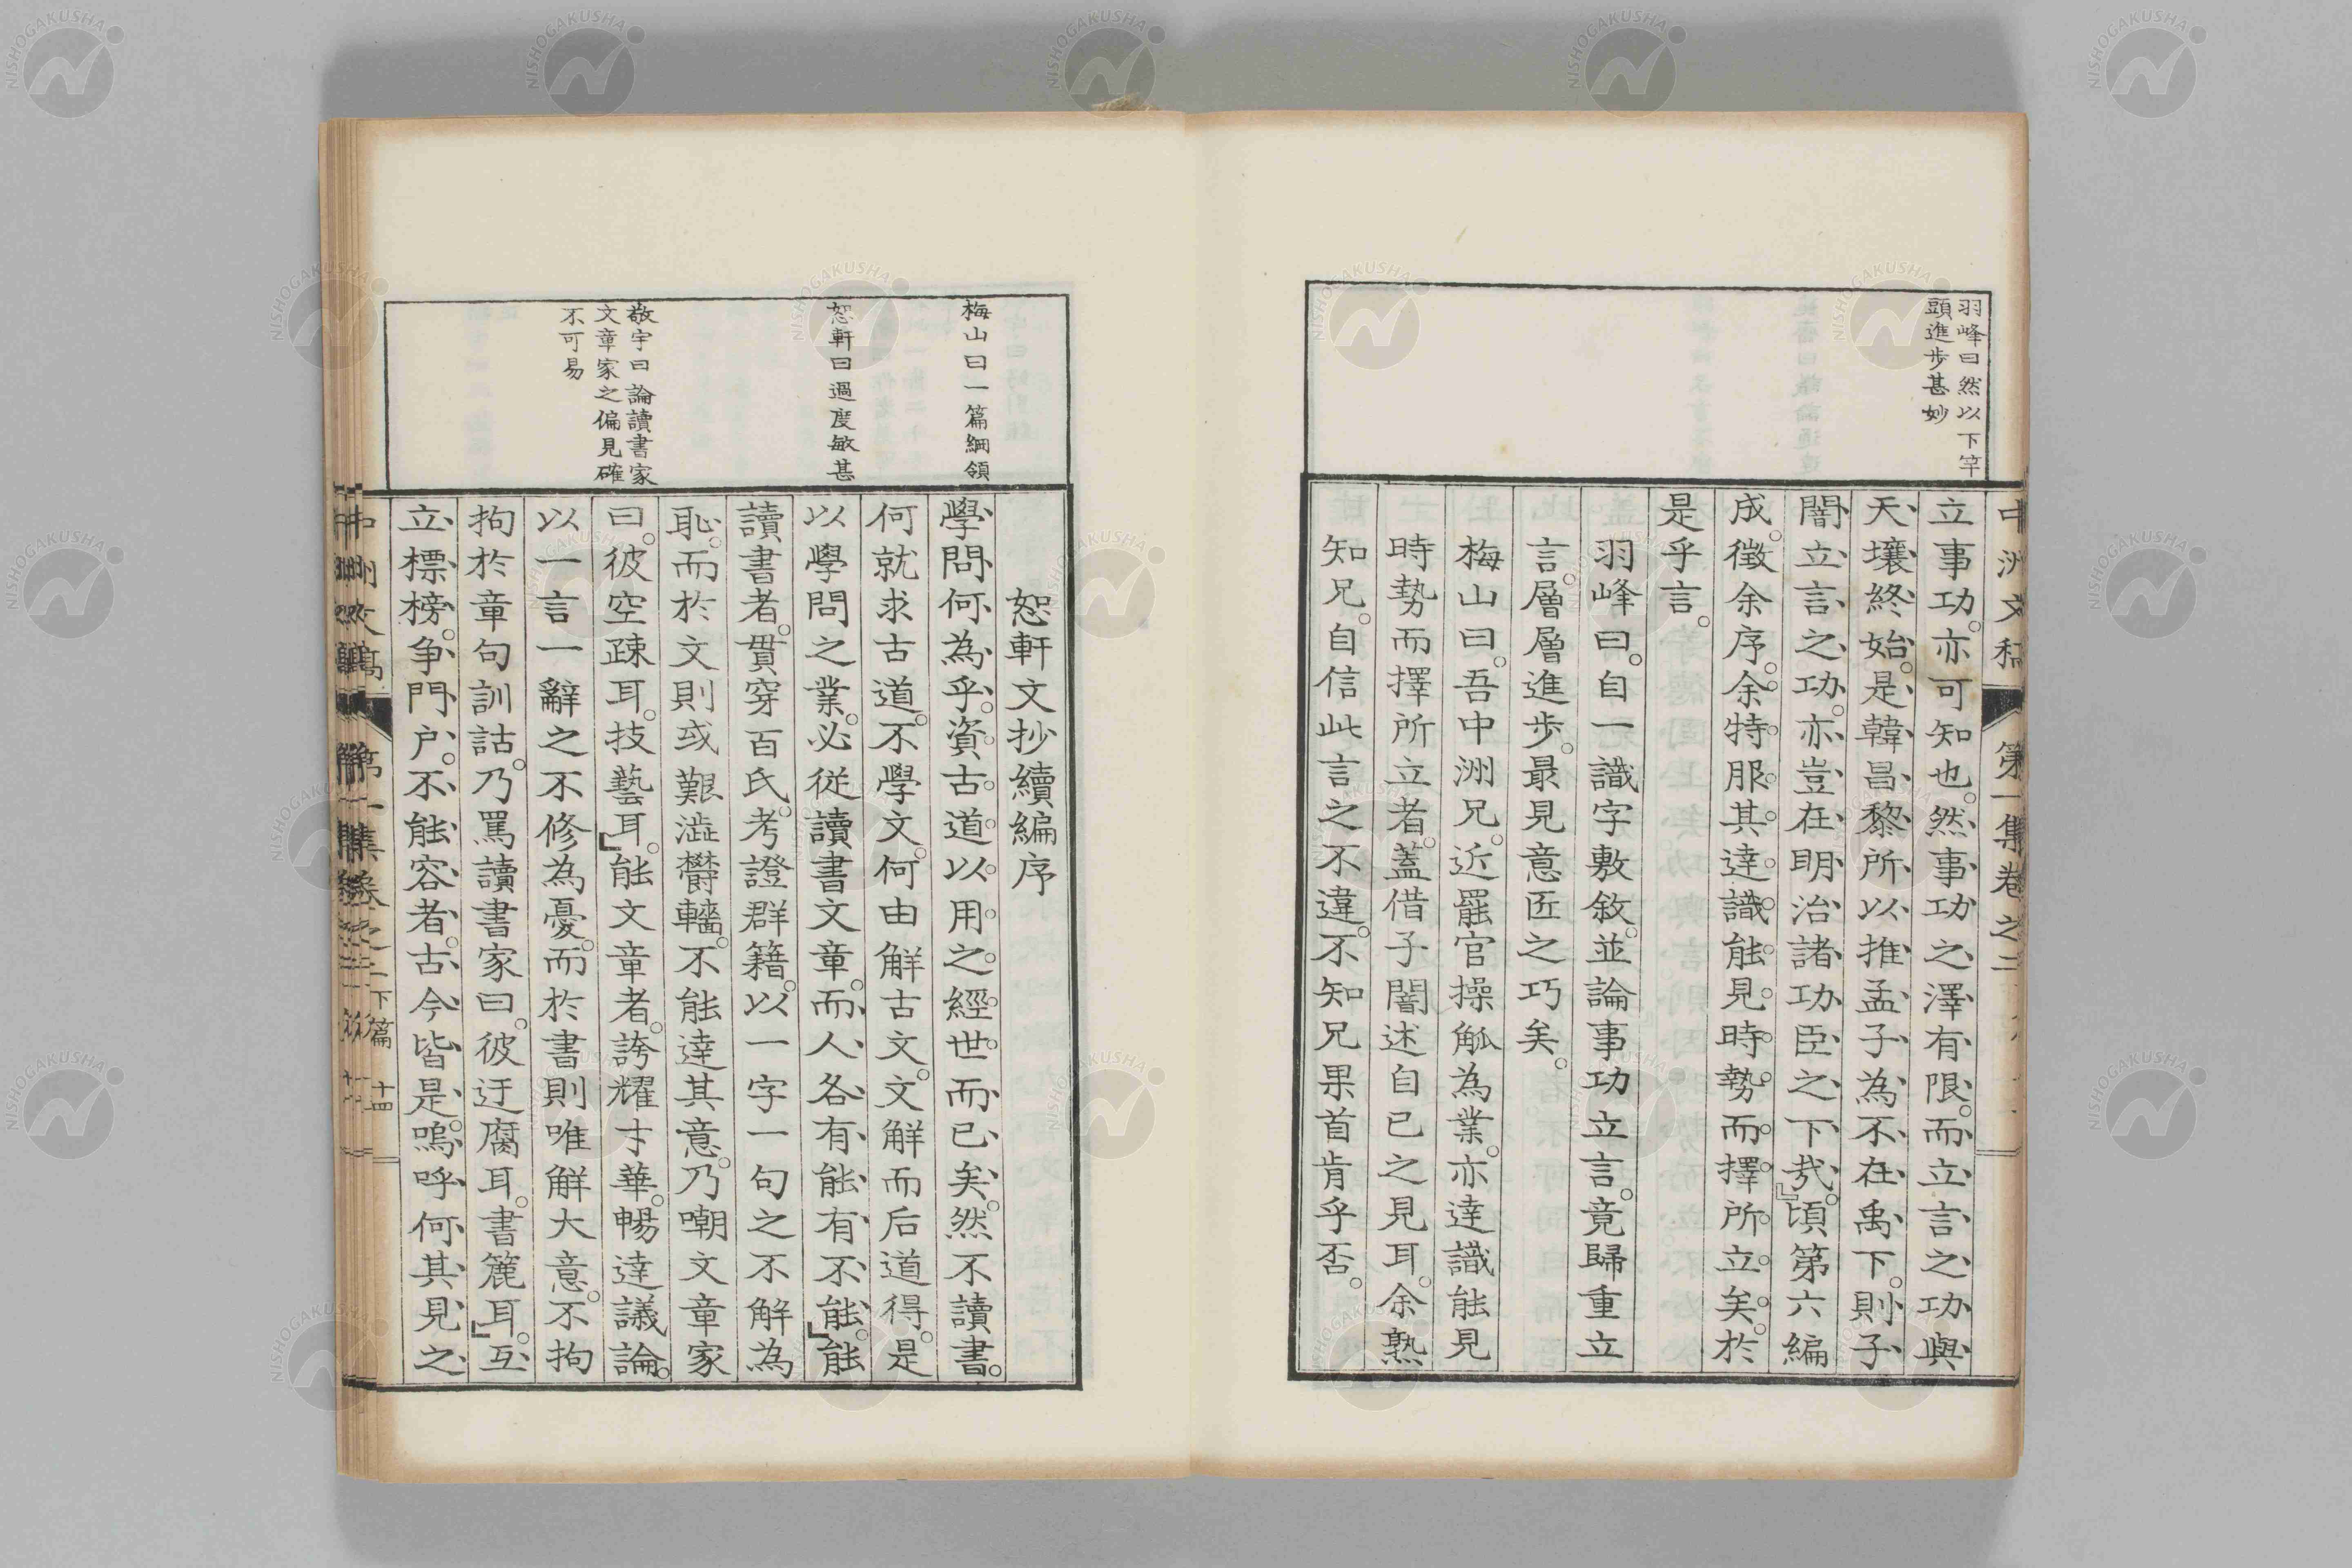 羽峰曰然以下竿
頭進步甚妙
中洲文稿 第一集卷之二
立事功。亦可知也。然事功之澤有限。而立言之功與
天壤終始。是韓昌黎所以推孟子為不在禹下。則子
闇立言之功。亦豈在明治諸功臣之下哉。』頃第六編
成。徵余序。余特服其達識能見時勢而擇所立矣。於
是乎言。
羽峰曰。自一識字敷敘。並論事功立言。竟歸重立
言。層層進步。最見意匠之巧矣。
梅山曰。吾中洲兄。近罷官操觚為業。亦達識能見
時勢而擇所立者。蓋借子闇述自己之見耳。余熟
知兄。自信此言之不違。不知兄果首肯乎否。
梅山曰一篇綱領
恕軒曰過度敏甚
敬宇曰論讀書家
文章家之偏見確
不可易
恕軒文抄續編序
學問何為乎。資古道以用之經世而已矣。然不讀書。
何就求古道。不學文。何由解古文。文解而后道得。是
以學問之業。必從讀書文章。而人各有能有不能。』能
讀書者。貫穿百氏。考證群籍。以一字一句之不解為
恥。而於文則或艱澁欝轖。不能達其意。乃嘲文章家
曰。彼空疎耳。技藝耳。』能文章者。誇耀才華。暢達議論。
以一言一辭之不修為憂。而於書則唯解大意。不拘
拘於章句訓詁。乃罵讀書家曰。彼迂腐耳。書簏耳。』互
立標榜。争門户。不能容者。古今皆是。嗚呼何其見之
中洲文稿 第一集卷之二下篇 十四
NISHOGAKUSHA